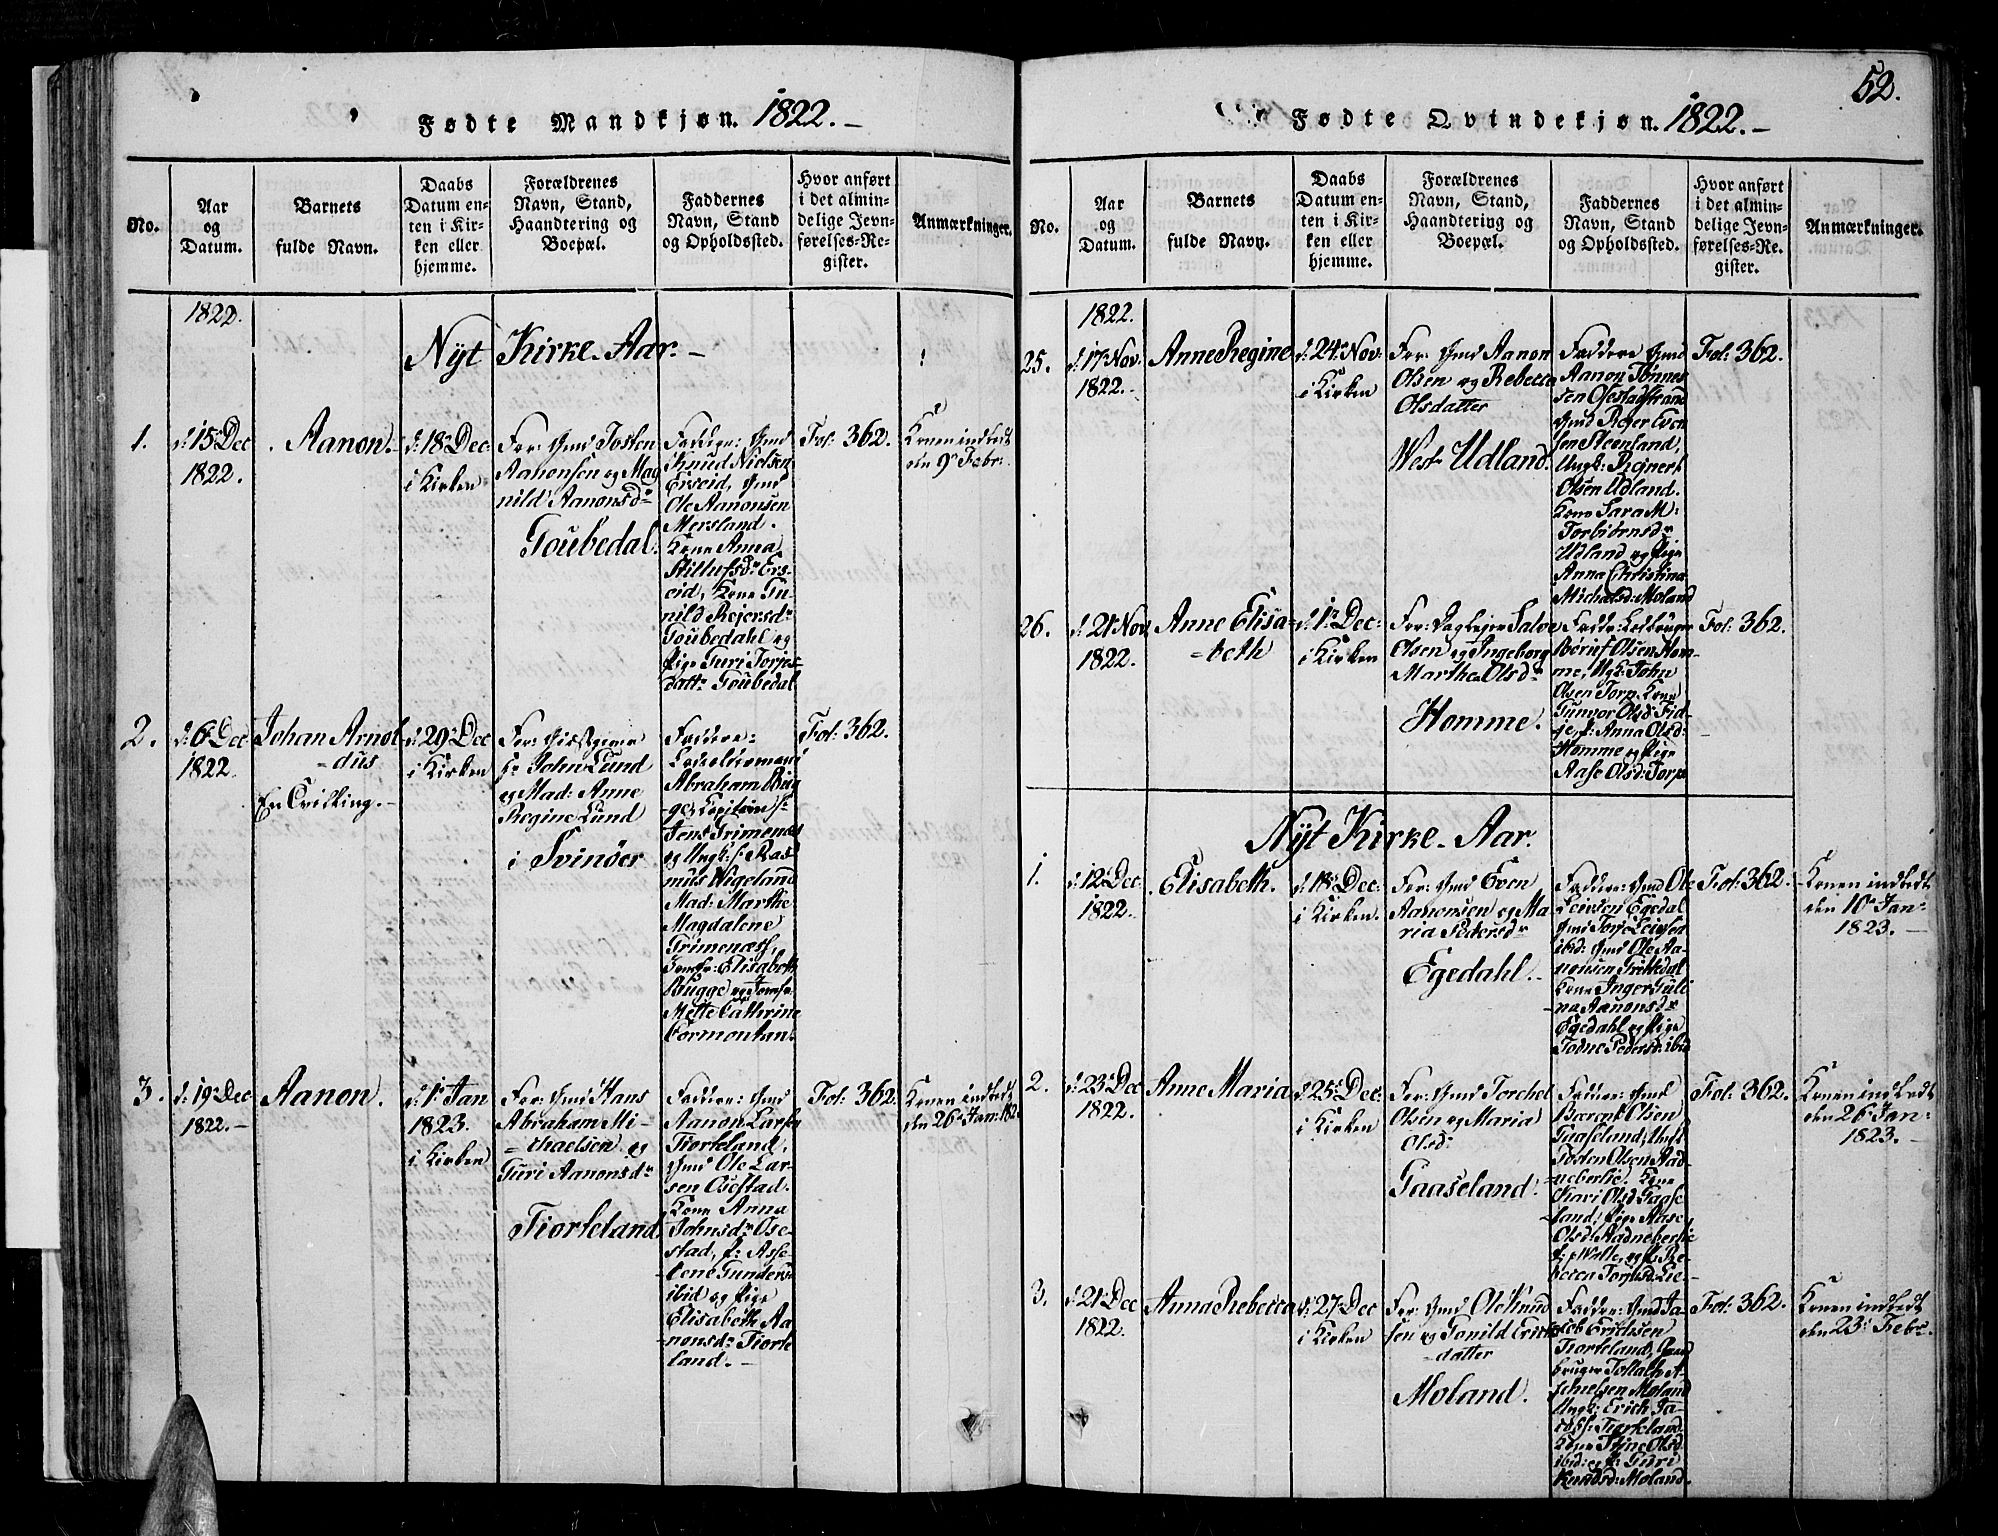 Fødte Mandkjøn. 1822.
No.
Aar
og
Datum.
Barnets
fulde Navn.
Daabs
Datum en-
ten i Kir-
ken eller
hjemme.
Forældrenes
Navn, Stand,
Haandtering og
Boepæl.
Faddernes
Navn, Stand
og Opholdssted.
Hvor anført
i det almin-
delige Jevn-
førelses-Re-
gister.
Anmærkninger.
1822.
Nyt Kirke-Aar.
1.
d: 15 Dec
1822.
Aanon.
d: 18 Dec:
i Kirken
For: Gmd Tosten
Aanonsen og Mag
nild Aanonsdr
Goubedal.
Knud Nielsen
Erseid, Gmd
Ole Aanonsen
Mersland.
Kone Anna
eid, Kone Gu-
nild Reiersdr
Goubedahl og
Pige Guri Torjs
datt: Goubedal
Fol: 362.
Konen indledt
den 9 Febr:
2.
d: 6 Dec
1822.
Johan Arnol-
=dus
En Tvilling.
d: 29 Dec
i Kirken
For: Giestgiver
Hr John Lund
og Mad: Anne
Regine Lund
i Svinøer
Faddere:
Abraham Bug
Jens Grimenæs
og Ungk: Hr Ras
mus Wigeland
Mad: Marthe
Magdalene
Grimenæs
Jomfr: Elisabeth
Bugge og Jomfr
Mette Cathrine
Cormontan.
Fol: 362.
3.
d: 19 Dec
1822.
Aanon.
d: 1 Jan
1823.
i Kirken
For: Gmd Hans
Abraham Mi-
=chaelsen og
Guri Aanonsdr
Tiorkeland
Faddere: Gmd
Aanon Larsen
Tiorkeland,
Gmd Ole Lar-
sen Osestad.
Kone Anna
Johnsdr Ose-
stad, P: Asse-
lene Gunders
ibid og Pige
Elisabeth Aa-
nonsd: Tiorke
land.
Fol: 362.
Konen indledt
den 26 Jan: 182
52.
Fødte Qvindekjøn. 1822.
No.
Aar
og
Datum.
Barnets
fulde Navn.
Daabs
Datum en-
ten i Kir-
ken eller
hjemme.
Forældrenes
Navn, Stand,
Haandtering og
Boepæl.
Faddernes
Navn, Stand
og Opholdssted.
Hvor anført
i det almin-
delige Jevn-
førelses-Re-
gister.
Anmærkninger.
1822.
25.
d: 17 Nov.
1822.
Anne Regine
d: 24 Nov:
i Kirken
For: Gmd Aanon
Olsen og Rebecca
Olsdatter
West Udland.
Faddere Gmd
Aanon Tønnes
sen Osestadstrand
Gmd Reier Even
sen Steensland,
Ungk: Reinert
Olsen Udland.
Kone Sara M:
Torbiørnsdr
Udland og Pige
Anne Christina
Michalsd: Moland
Fol: 362.
26.
d: 21 Nov
1822.
Anne Elisa-
=beth
d: 1 Dec:
i Kirken
For: Dagleier Salve
Olsen og Ingeborg
Marthe Olsdr
Homme.
Olsen Hom-
me, Ugk: John
Olsen Torp. Kone
Gunvor Olsd: Fid-
je, P: Anna Olsd:
Homme og Pige
Aase Olsd: Torp
Fol: 362.
Nyt Kirke-Aar.
1.
d: 12 Dec
1822.
Elisabeth.
d: 18 Dec:
i Kirken.
For: Gmd Even
Aanonsen og Ma
ria Pedersdr
Egedahl.
Faddere: Gmd Ole
Leivsen Egedal
Gmd Torje Leivsen
ibid: Gmd Ole Aa-
nonsen
Kone Inger Guli
na Aanonsdr
Egedahl og Pige
Todne Pedersd: ibid
Fol: 362.
Konen indledt
den 10 Jan:
1823.
2.
d: 23 Dec
1822.
Anne Maria
d: 25 Dec:
i Kirken
For: Gmd Torckel
Olsen og Maria
Olsd:
Gaaseland.
Faddere: Gmd
Berent Olsen
Gaaseland, Ungk
Tosten Olsen Aad-
neberlie. Kone
Kari Olsd Gaase
land, Pige Aase
Olsd Aadneberlie
Fol: 362.
Konen indledt
den 26 Jan:
1823.
3.
d: 21 Dec
1822.
Anna Rebecca
d: 27 Dec
i Kirken
For: Gmd Ole Knud
sen og Gonild Erichs
=datter
Moland.
Faddere: Gmd Ja-
cob Erichsen
Tiorkeland, Gaard
bruger Tollach A-
Moland
Ungk: Erich Ja-
cobs: Tiorkeland
Kone Stine Olsd:
ibid: og P: Guri
Knudsd: Moland.
Fol: 362.
Konen indledt
den 23 Febr.